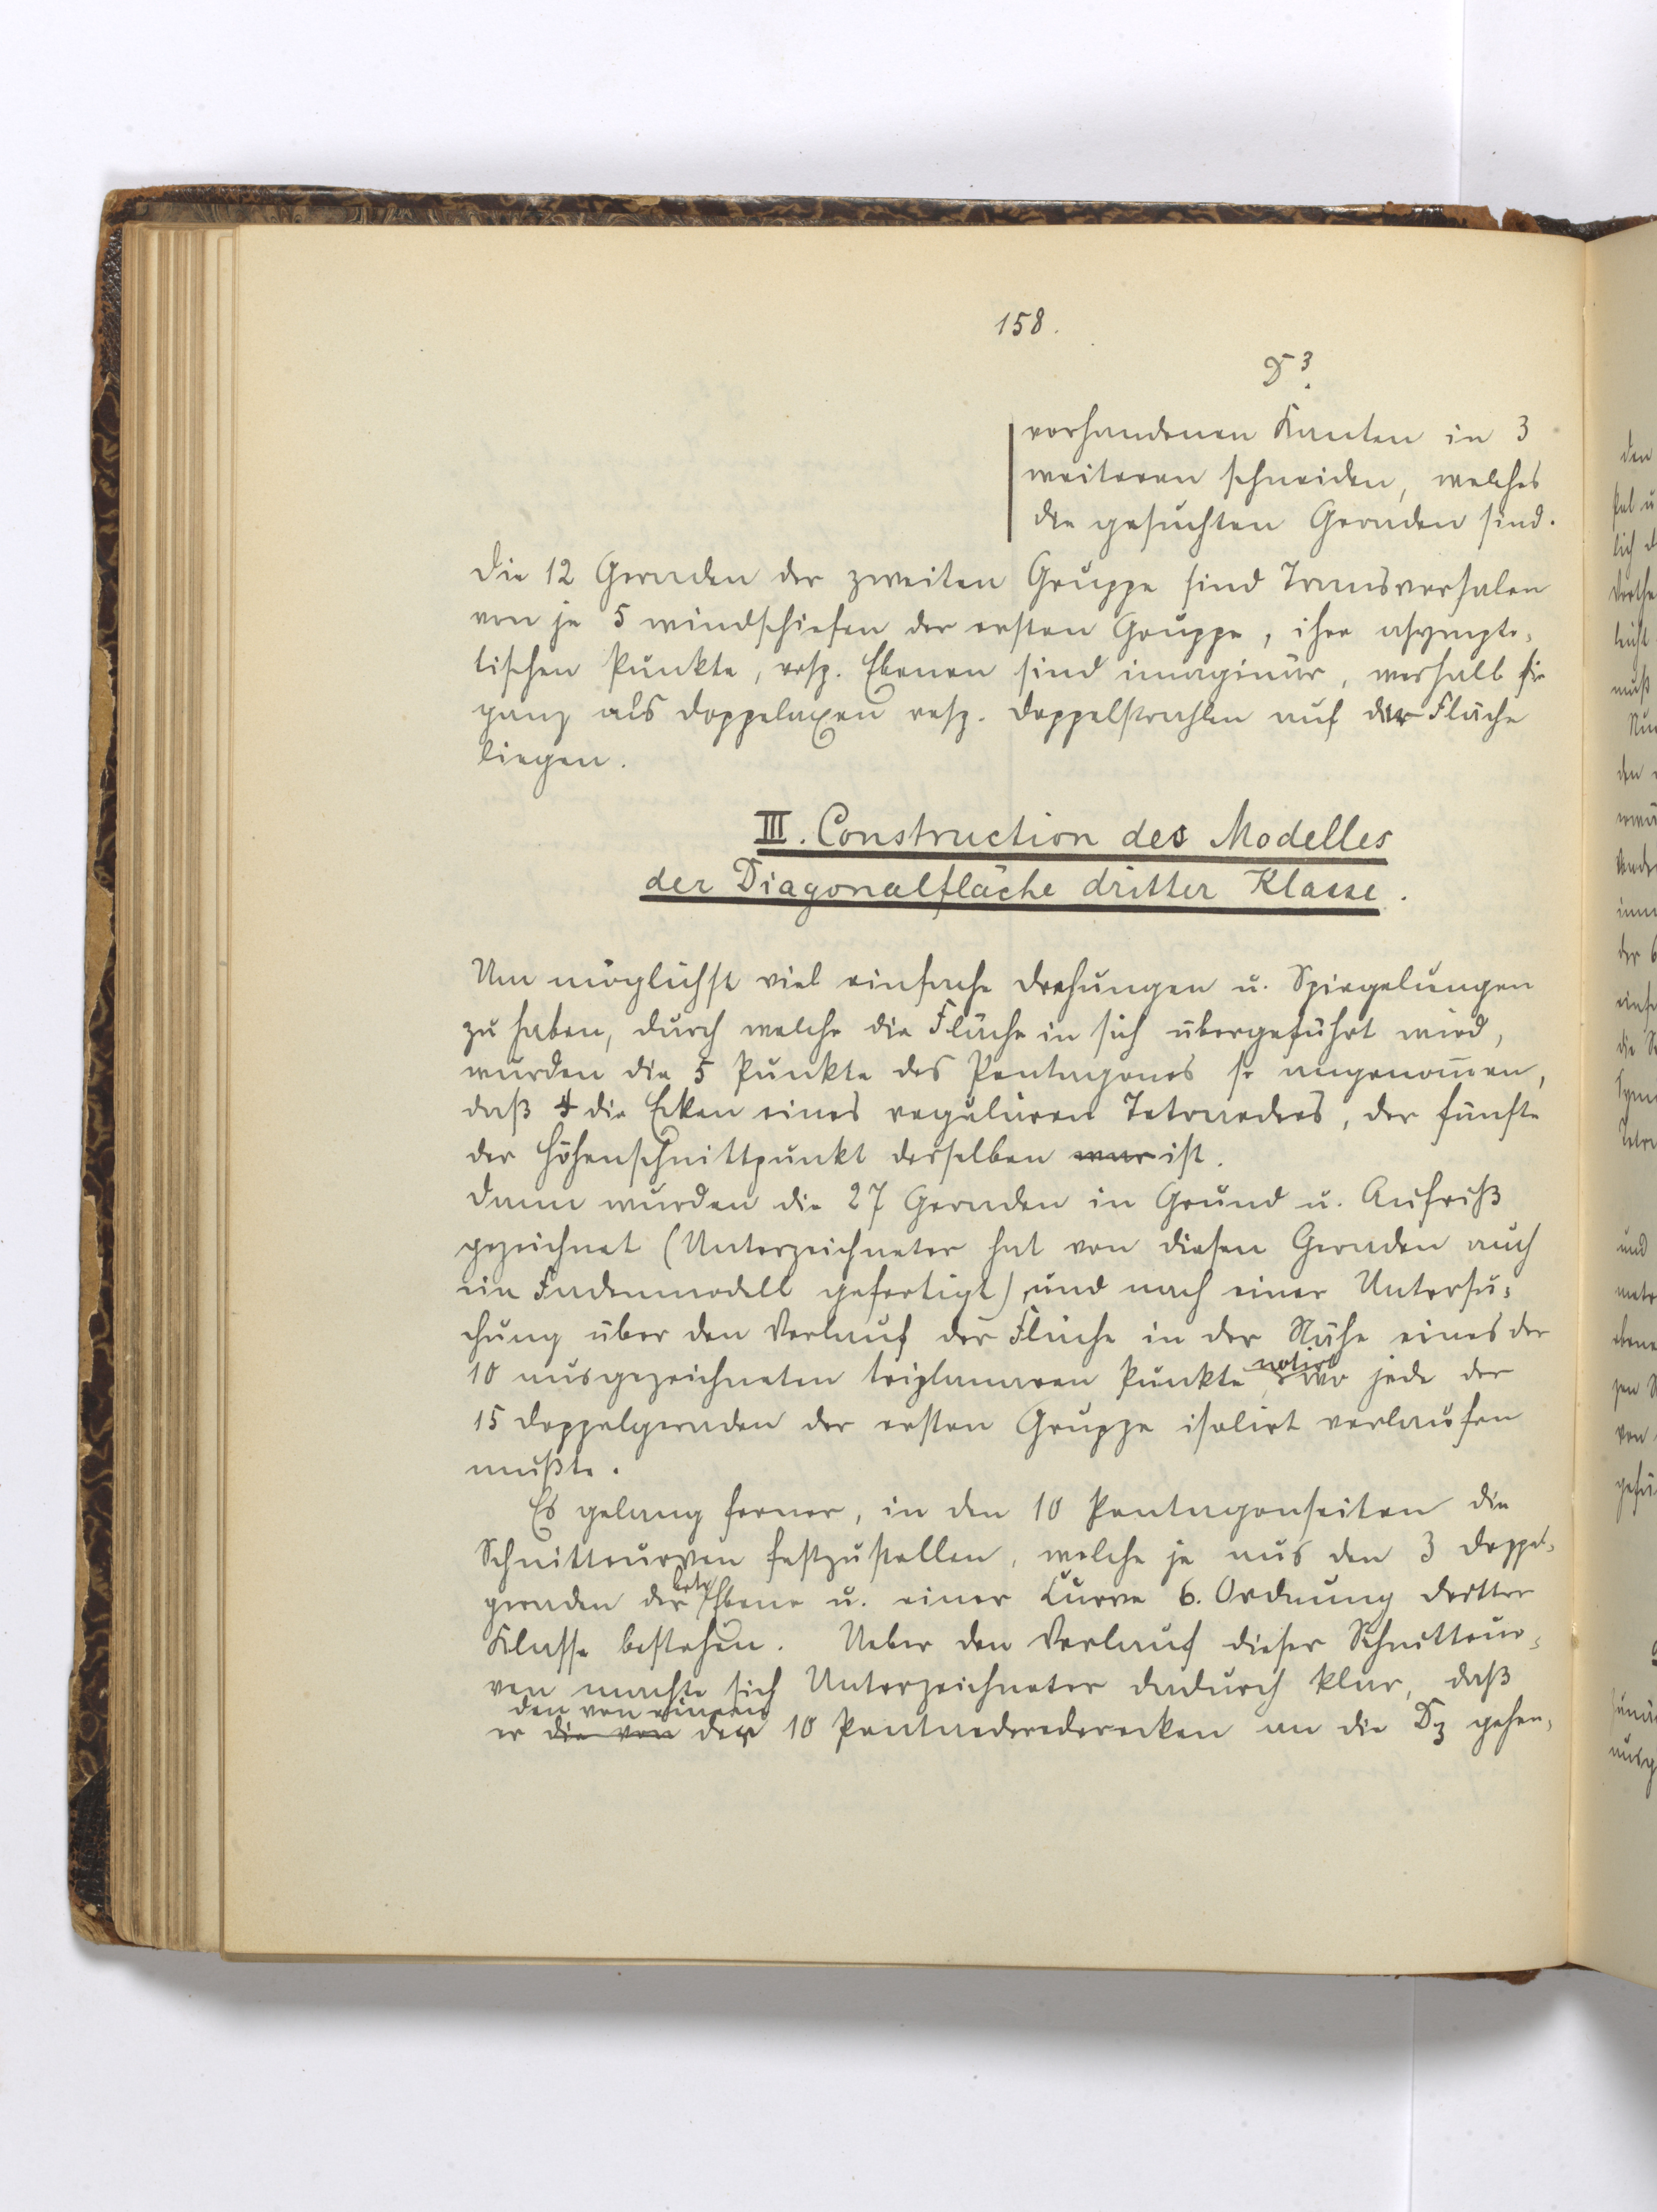 158.
D³.
vorhandenen Kanten in 3
weiteren schneiden, welches
die gesuchten Geraden sind.
Die 12 Geraden der zweiten Gruppe sind Transversalen
von je 5 windschiefen der ersten Gruppe, ihre asympto-
tischen Punkte, resp. Ebenen sind imaginär, weshalb sie
ganz als Doppelaxen resp. Doppelstrahlen auf der Fläche
liegen.
III. Construction des Modelles
der Diagonalfläche dritter Klasse.
Um möglichst viel einfache Drehungen u. Spiegelungen
zu haben, durch welche die Fläche in sich übergeführt wird,
wurden die 5 Punkte des Pentagones so angenom̄en,
daß 4 die Ecken eines regulären Tetraeders, der fünfte
der Höhenschnittpunkt desselben war ist.
Dann wurden die 27 Geraden in Grund u. Aufriß
gezeichnet (Unterzeichneter hat von diesen Geraden auch
ein Fadenmodell gefertigt), und nach einer Untersu-
chung über den Verlauf der Fläche in der Nähe eines der
10 ausgezeichneten triplanaren Punkte, notirt wo jede der
15 Doppelgeraden der ersten Gruppe isolirt verlaufen
mußte.
Es gelang ferner, in den 10 Pentagonseiten die
Schnittcurven festzustellen, welche je aus den 3 Doppel-
geraden der betr. Ebene u. einer Curve 6. Ordnung dritter
Klasse bestehen. Ueber den Verlauf dieser Schnittcur-
ven machte sich Unterzeichneter dadurch klar, daß
den von einem
er die von der 10 Pentaederederecken an die D₃ gehen-